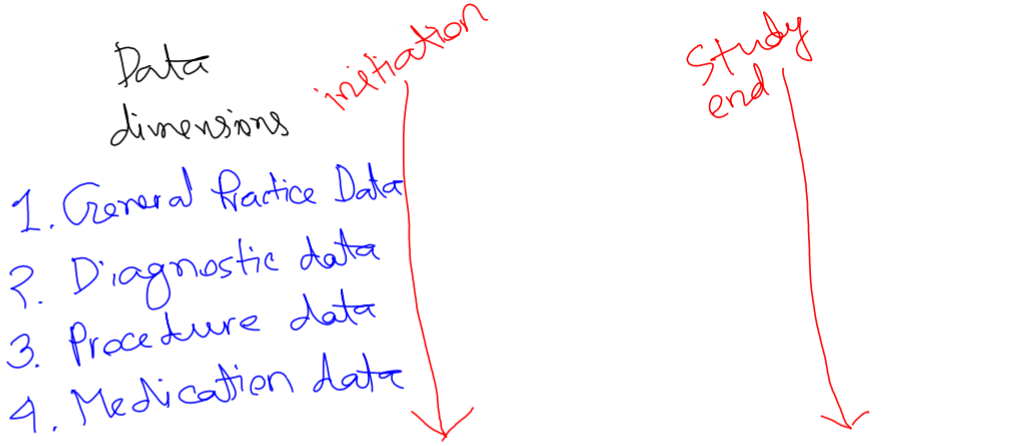 Data
dimensions
initiation
Study
end
1. General Practice Data
2. Diagnostic data
3. Procedure data
4. Medication data